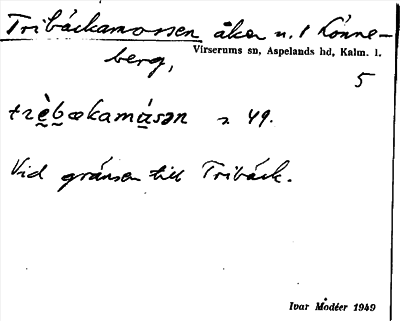 Tribäckamossen åker u. 1 Lönne-
berg,
Virserums sn, Aspelands hd, Kalm. l.
5
trèbækamásən s. 49.
Vid gränsen till Tribäck.
Ivar Modéer 1949